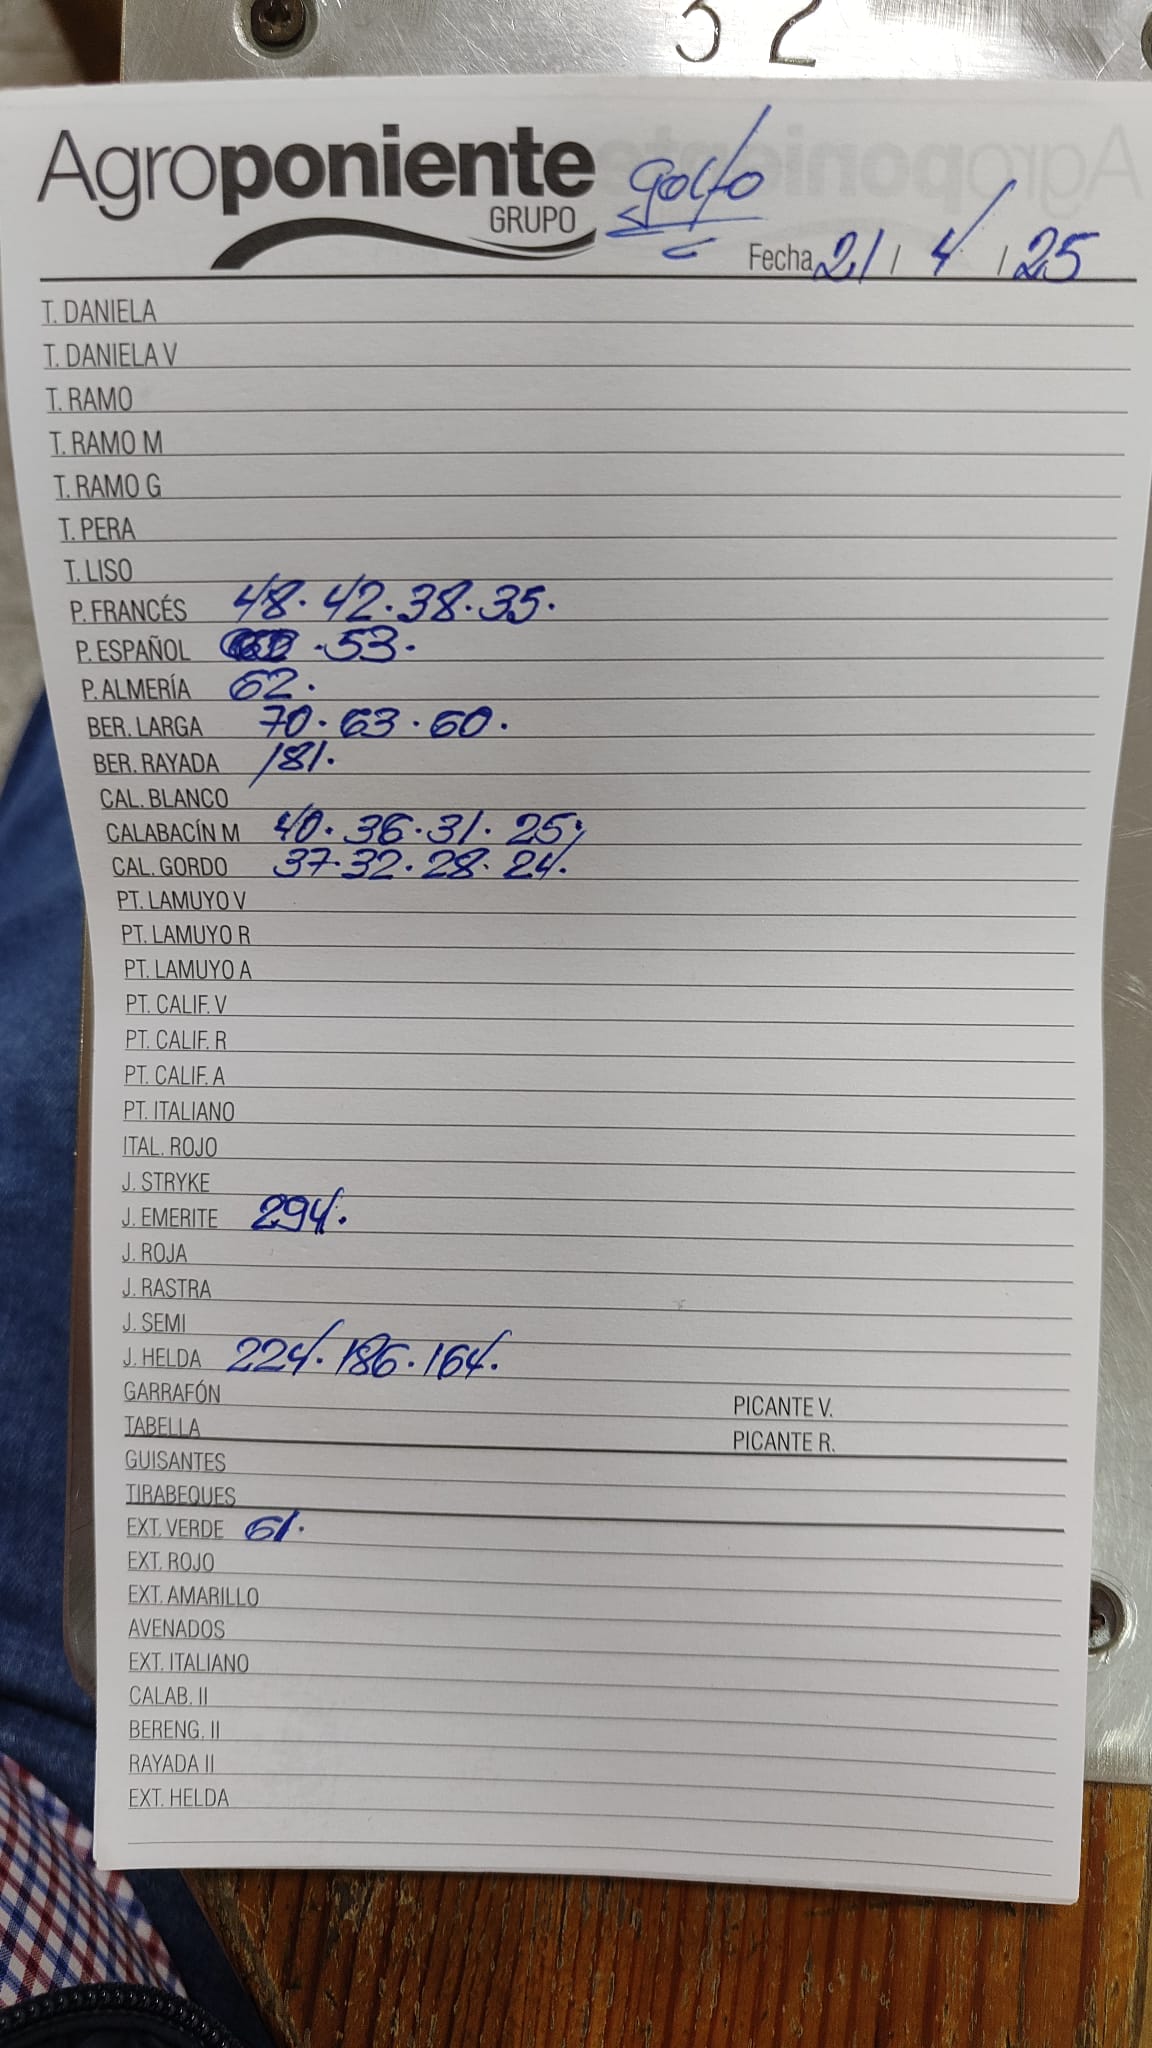 32
Agroponiente
GRUPO
Golfo
Fecha 21 / 4 / 25
T. DANIELA
T. DANIELA V
T. RAMO
T. RAMO M
T. RAMO G
T. PERA
T. LISO
P. FRANCÉS 48. 42. 38. 35.
P. ESPAÑOL . 53.
P. ALMERÍA 62.
BER. LARGA 70. 63. 60.
BER. RAYADA 181.
CAL. BLANCO
CALABACÍN M 40. 36. 31. 25.
CAL. GORDO 37. 32. 28. 24.
PT. LAMUYO V
PT. LAMUYO R
PT. LAMUYO A
PT. CALIF. V
PT. CALIF. R
PT. CALIF. A
PT. ITALIANO
ITAL. ROJO
J. STRYKE
J. EMERITE 294.
J. ROJA
J. RASTRA
J. SEMI
J. HELDA 224. 186. 164.
GARRAFÓN PICANTE V.
TABELLA PICANTE R.
GUISANTES
TIRABEQUES
EXT. VERDE 61.
EXT. ROJO
EXT. AMARILLO
AVENADOS
EXT. ITALIANO
CALAB. II
BERENG. II
RAYADA II
EXT. HELDA